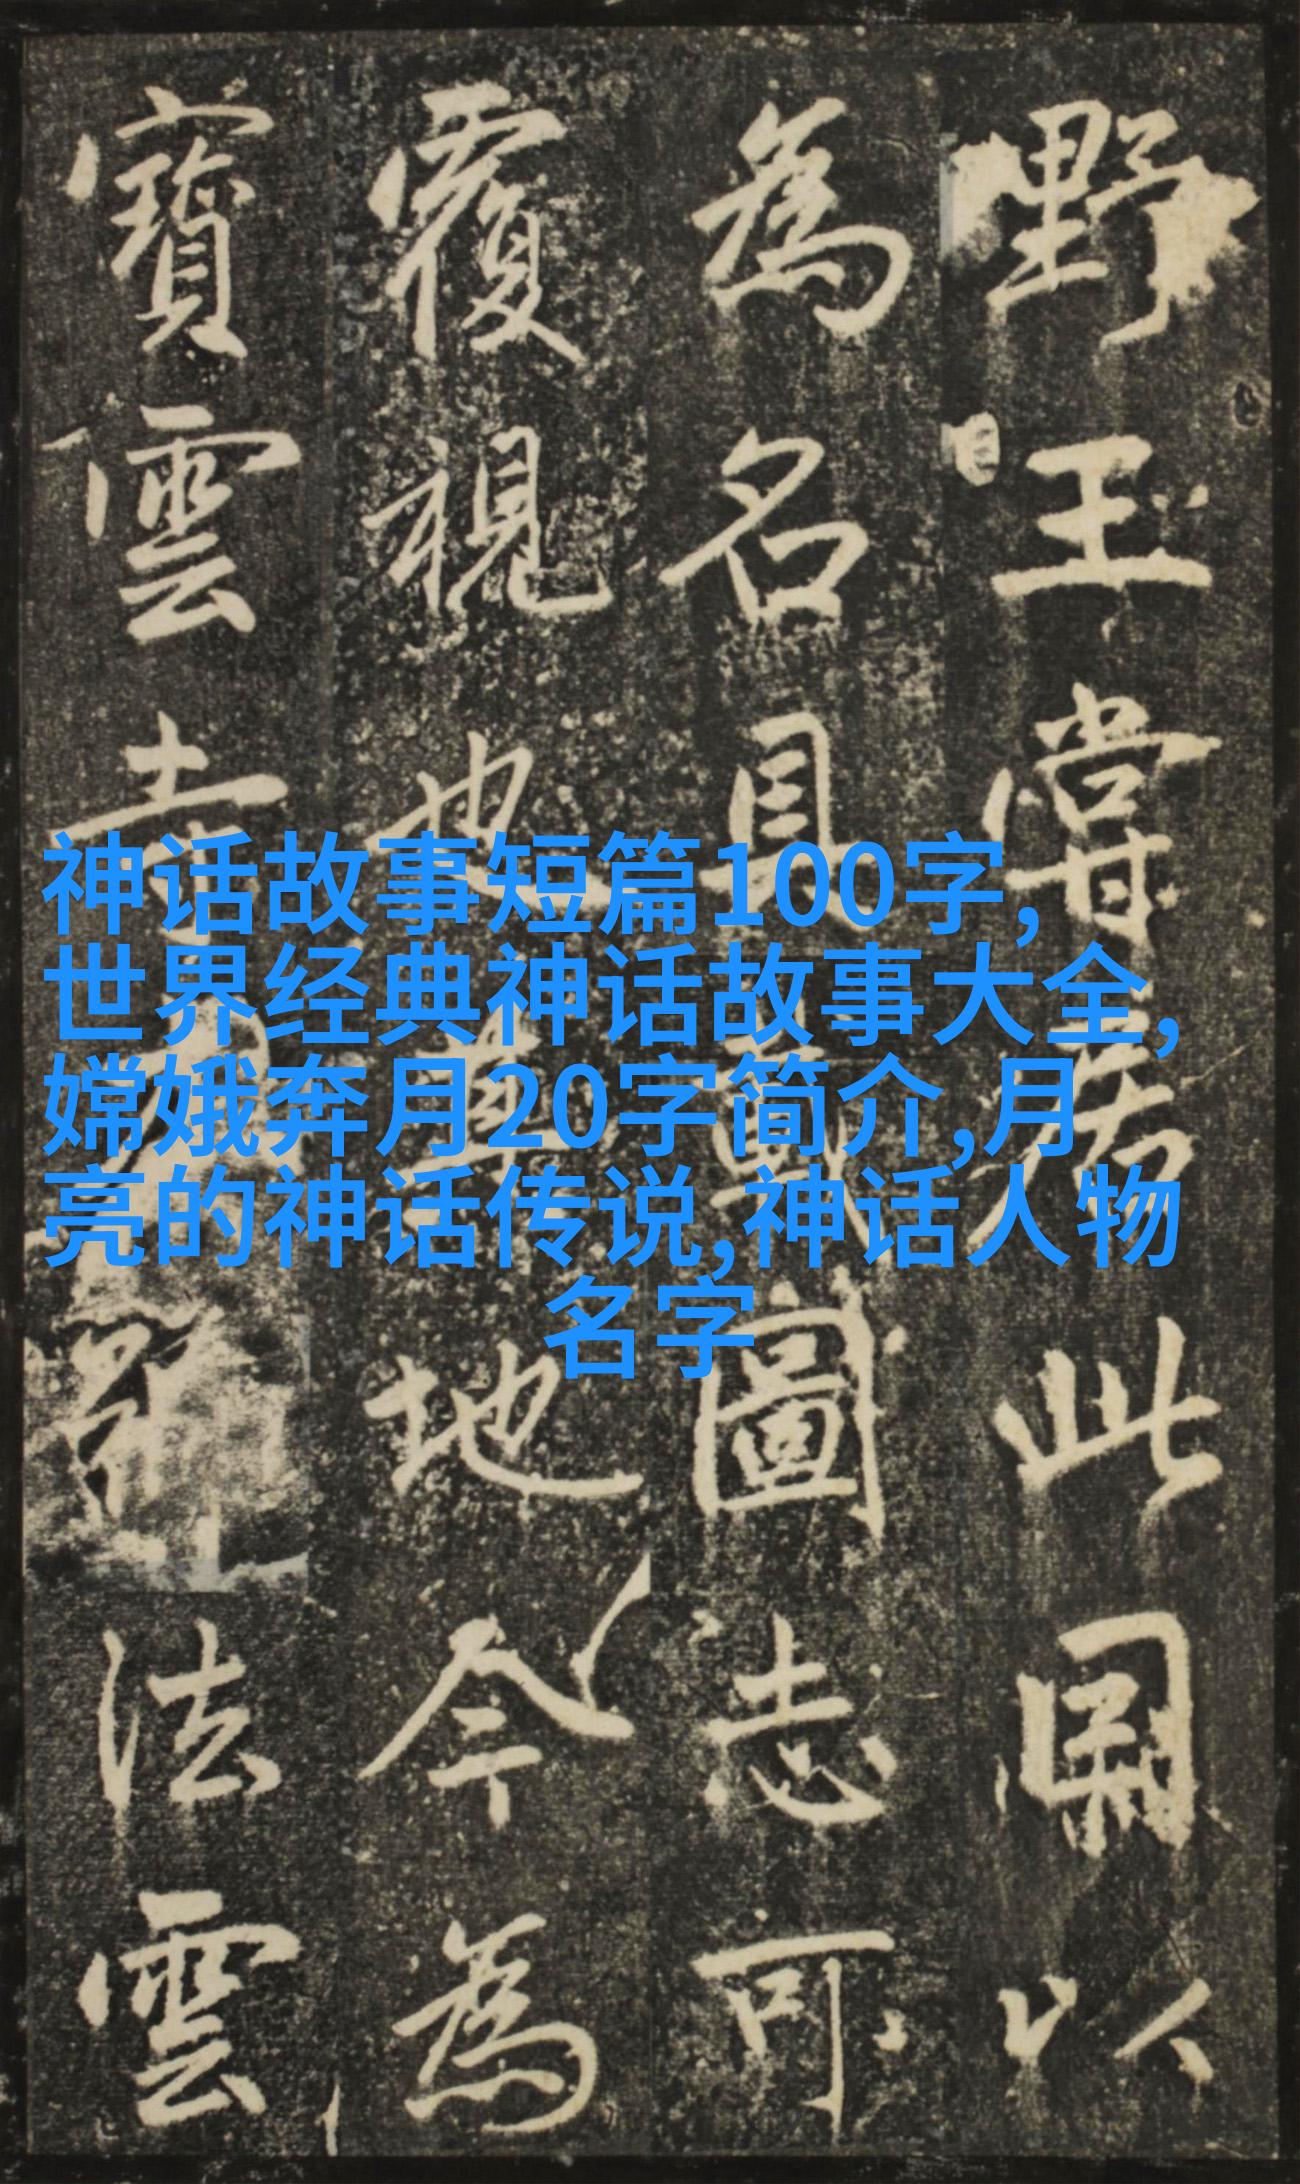 野王嘗居此因以
為名具載圖志可
覆視也其地今為
寶雲寺法雲
神话故事短篇100字,
世界经典神话故事大全,
嫦娥奔月20字简介,月
亮的神话传说,神话人物
名字